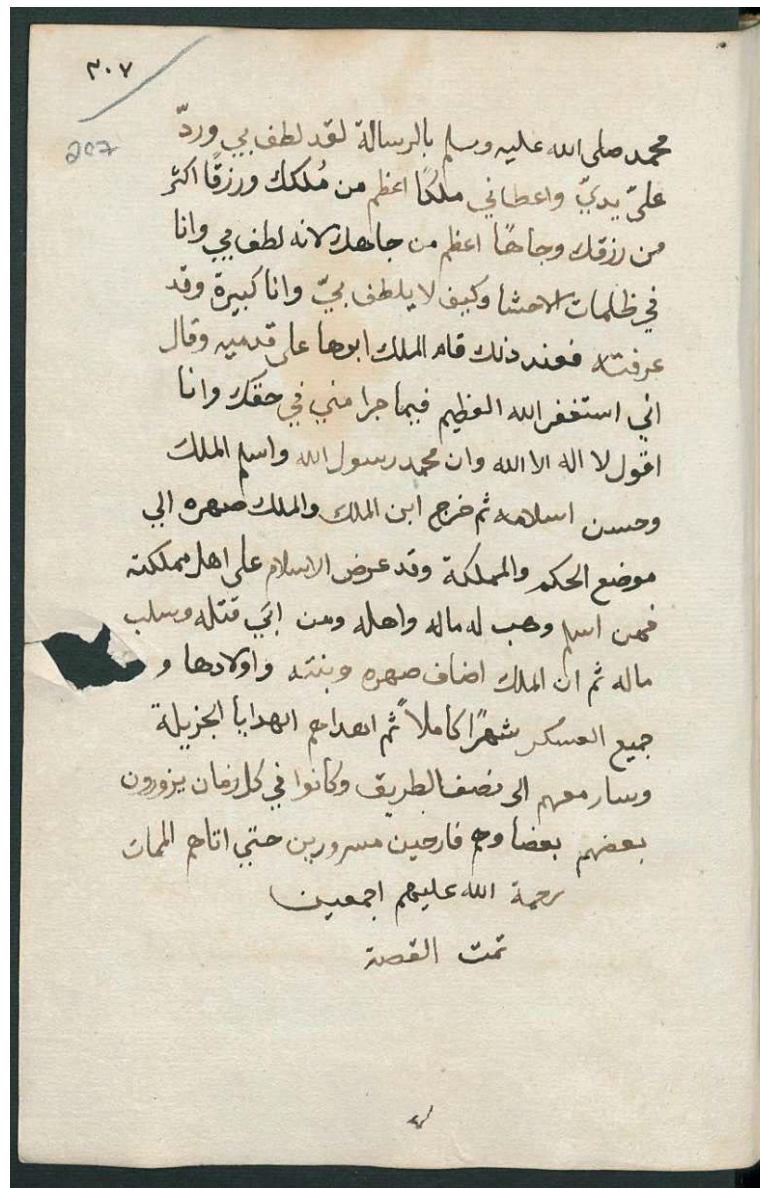 ٣٠٧
207
محمد صلى الله عليه وسلم بالرسالة لقد لطف بي وردّ
عليّ يديّ واعطاني ملكًا اعظم من مُلكك ورزقًا اكثر
من رزقك وجاهًا اعظم من جاهك لانه لطف بي وانا
في ظلمات الاحشا وكيف لا يلطف بيّ وانا كبيرة وقد
عرفته فعند ذلك قام الملك ابوها على قدميه وقال
اني استغفر الله العظيم فيما جرا مني في حقك وانا
اقول لا اله الا الله وان محمد رسول الله واسلم الملك
وحسن اسلامه ثم خرج ابن الملك والملك صهره الي
موضع الحكم والمملكة وقد عرض الاسلام على اهل مملكته
فمن اسلم وهب له ماله واهله ومن ابَي قتله وسلب
ماله ثم ان الملك اضاف صهره وبنته واولادها و
جميع العسكر شهرًا كاملاً ثم اهداهم الهدايا الجزيلة
وسار معهم الى نصف الطريق وكانوا في كل زمان يزورون
بعضهم بعضا وهم فارحين مسرورين حتي اتاهم الممات
رحمة الله عليهم اجمعين
تمت القصة